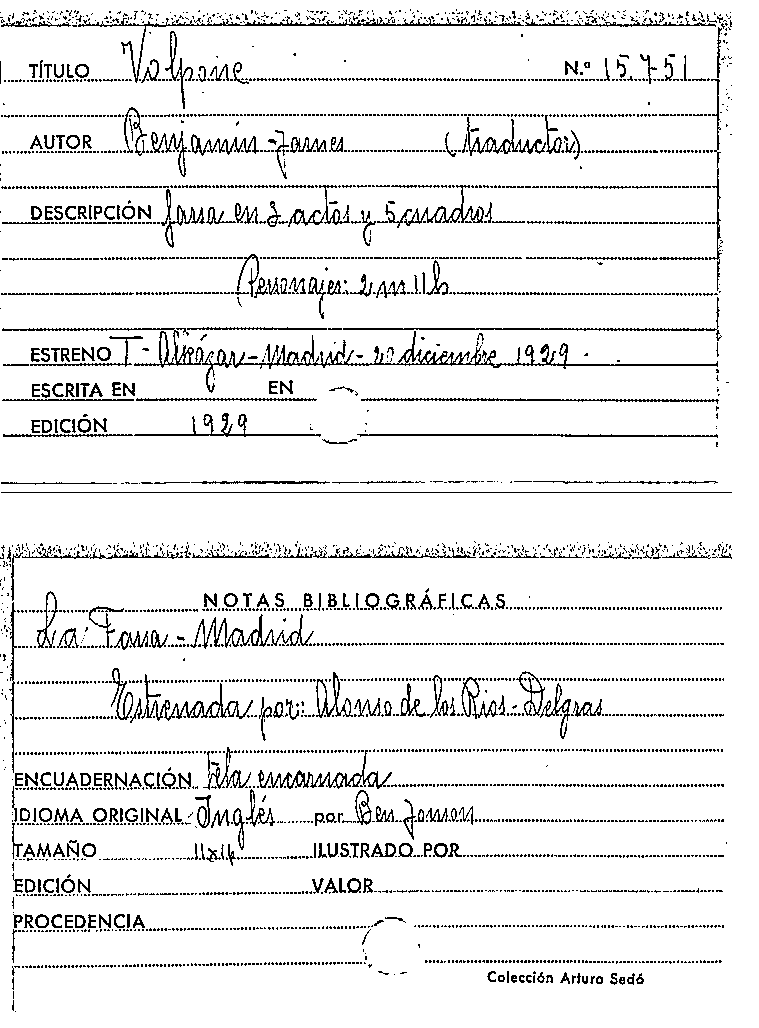 TÍTULO Volpone N.º 15.751
AUTOR Benjamín-Jarnes (traductor)
DESCRIPCIÓN farsa en 3 actos y 5 cuadros
Personajes: 2 m 11 h
ESTRENO T- Alkázar-Madrid- diciembre 1929.
ESCRITA EN EN
EDICIÓN 1929
NOTAS BIBLIOGRÁFICAS
La Farsa-Madrid
Estrenada por: Alonso de los Rios-Delgras
ENCUADERNACIÓN tela encarnada
IDIOMA ORIGINAL Inglés por Ben Jonson
TAMAÑO 11x16 ILUSTRADO POR
EDICIÓN VALOR
PROCEDENCIA
Colección Arturo Sedó